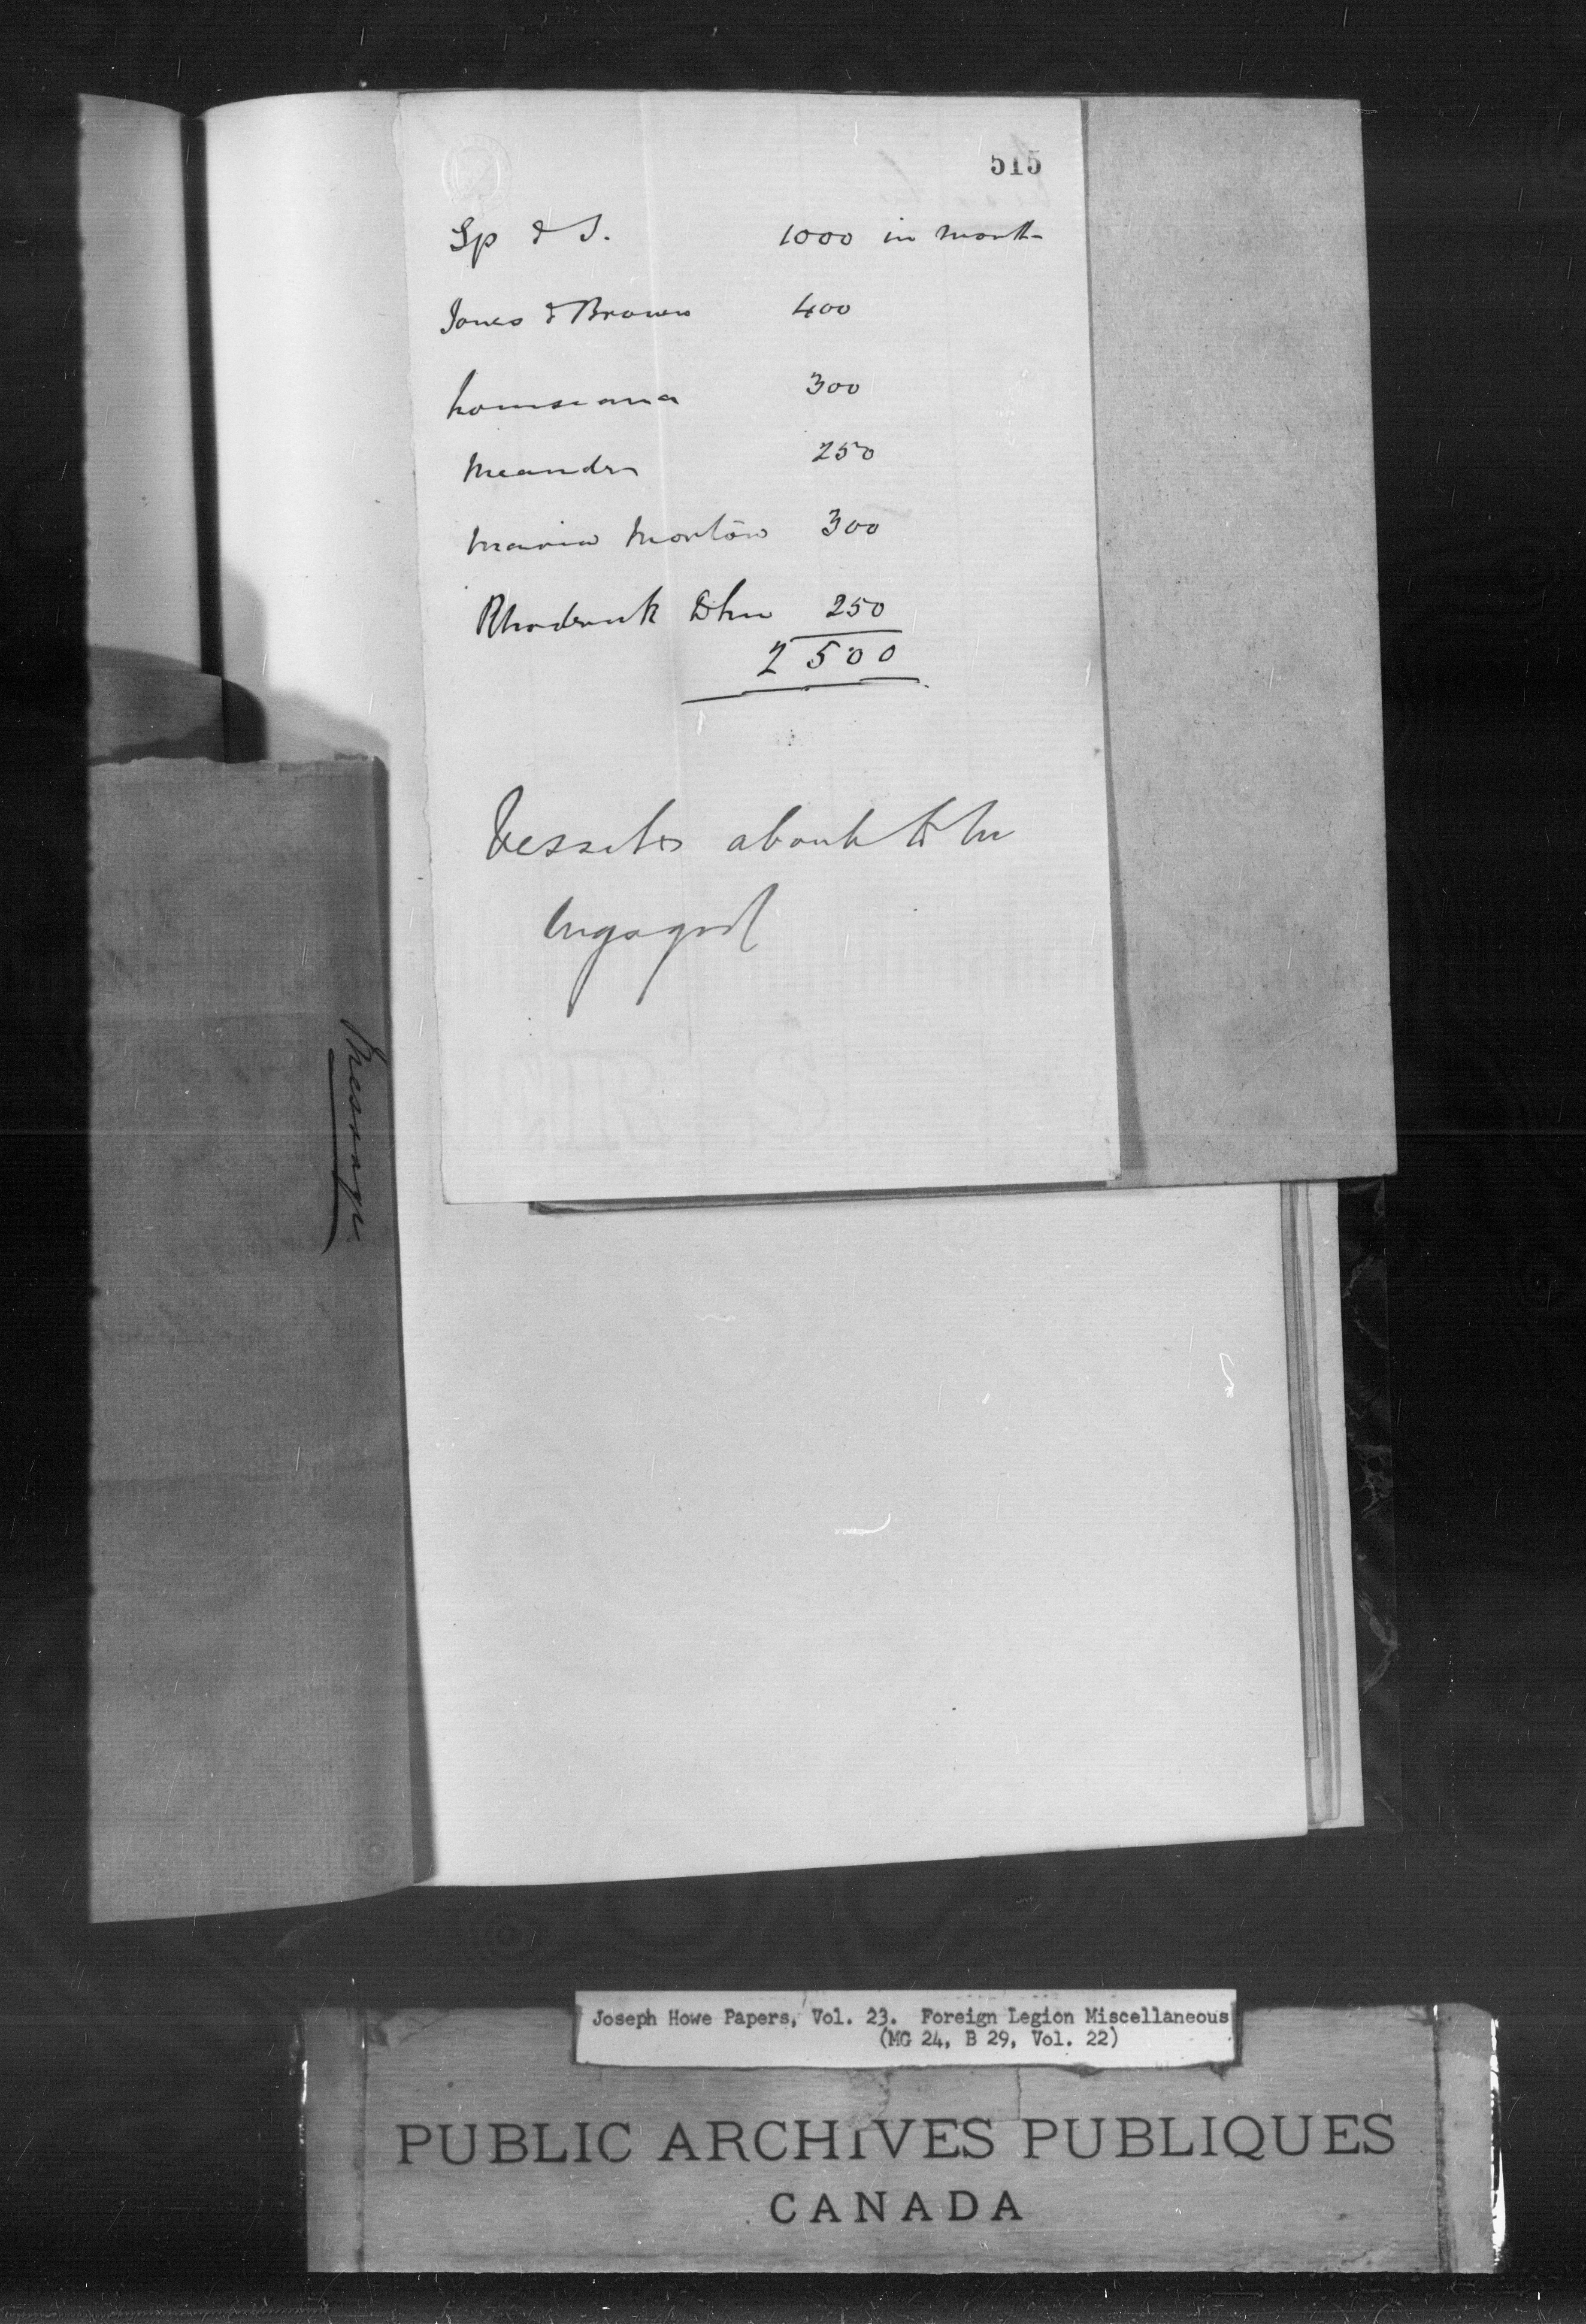 515
Sp & S. 1000 in month
Jones & Brown 400
Louisiana 300
Meander 250
Maria Morton 300
Rhoderick Dhu 250
2500
Vessels about to be
engaged
Message
Joseph Howe Papers, Vol. 23. Foreign Legion Miscellaneous
(MG 24, B 29, Vol. 22)
PUBLIC ARCHIVES PUBLIQUES
CANADA